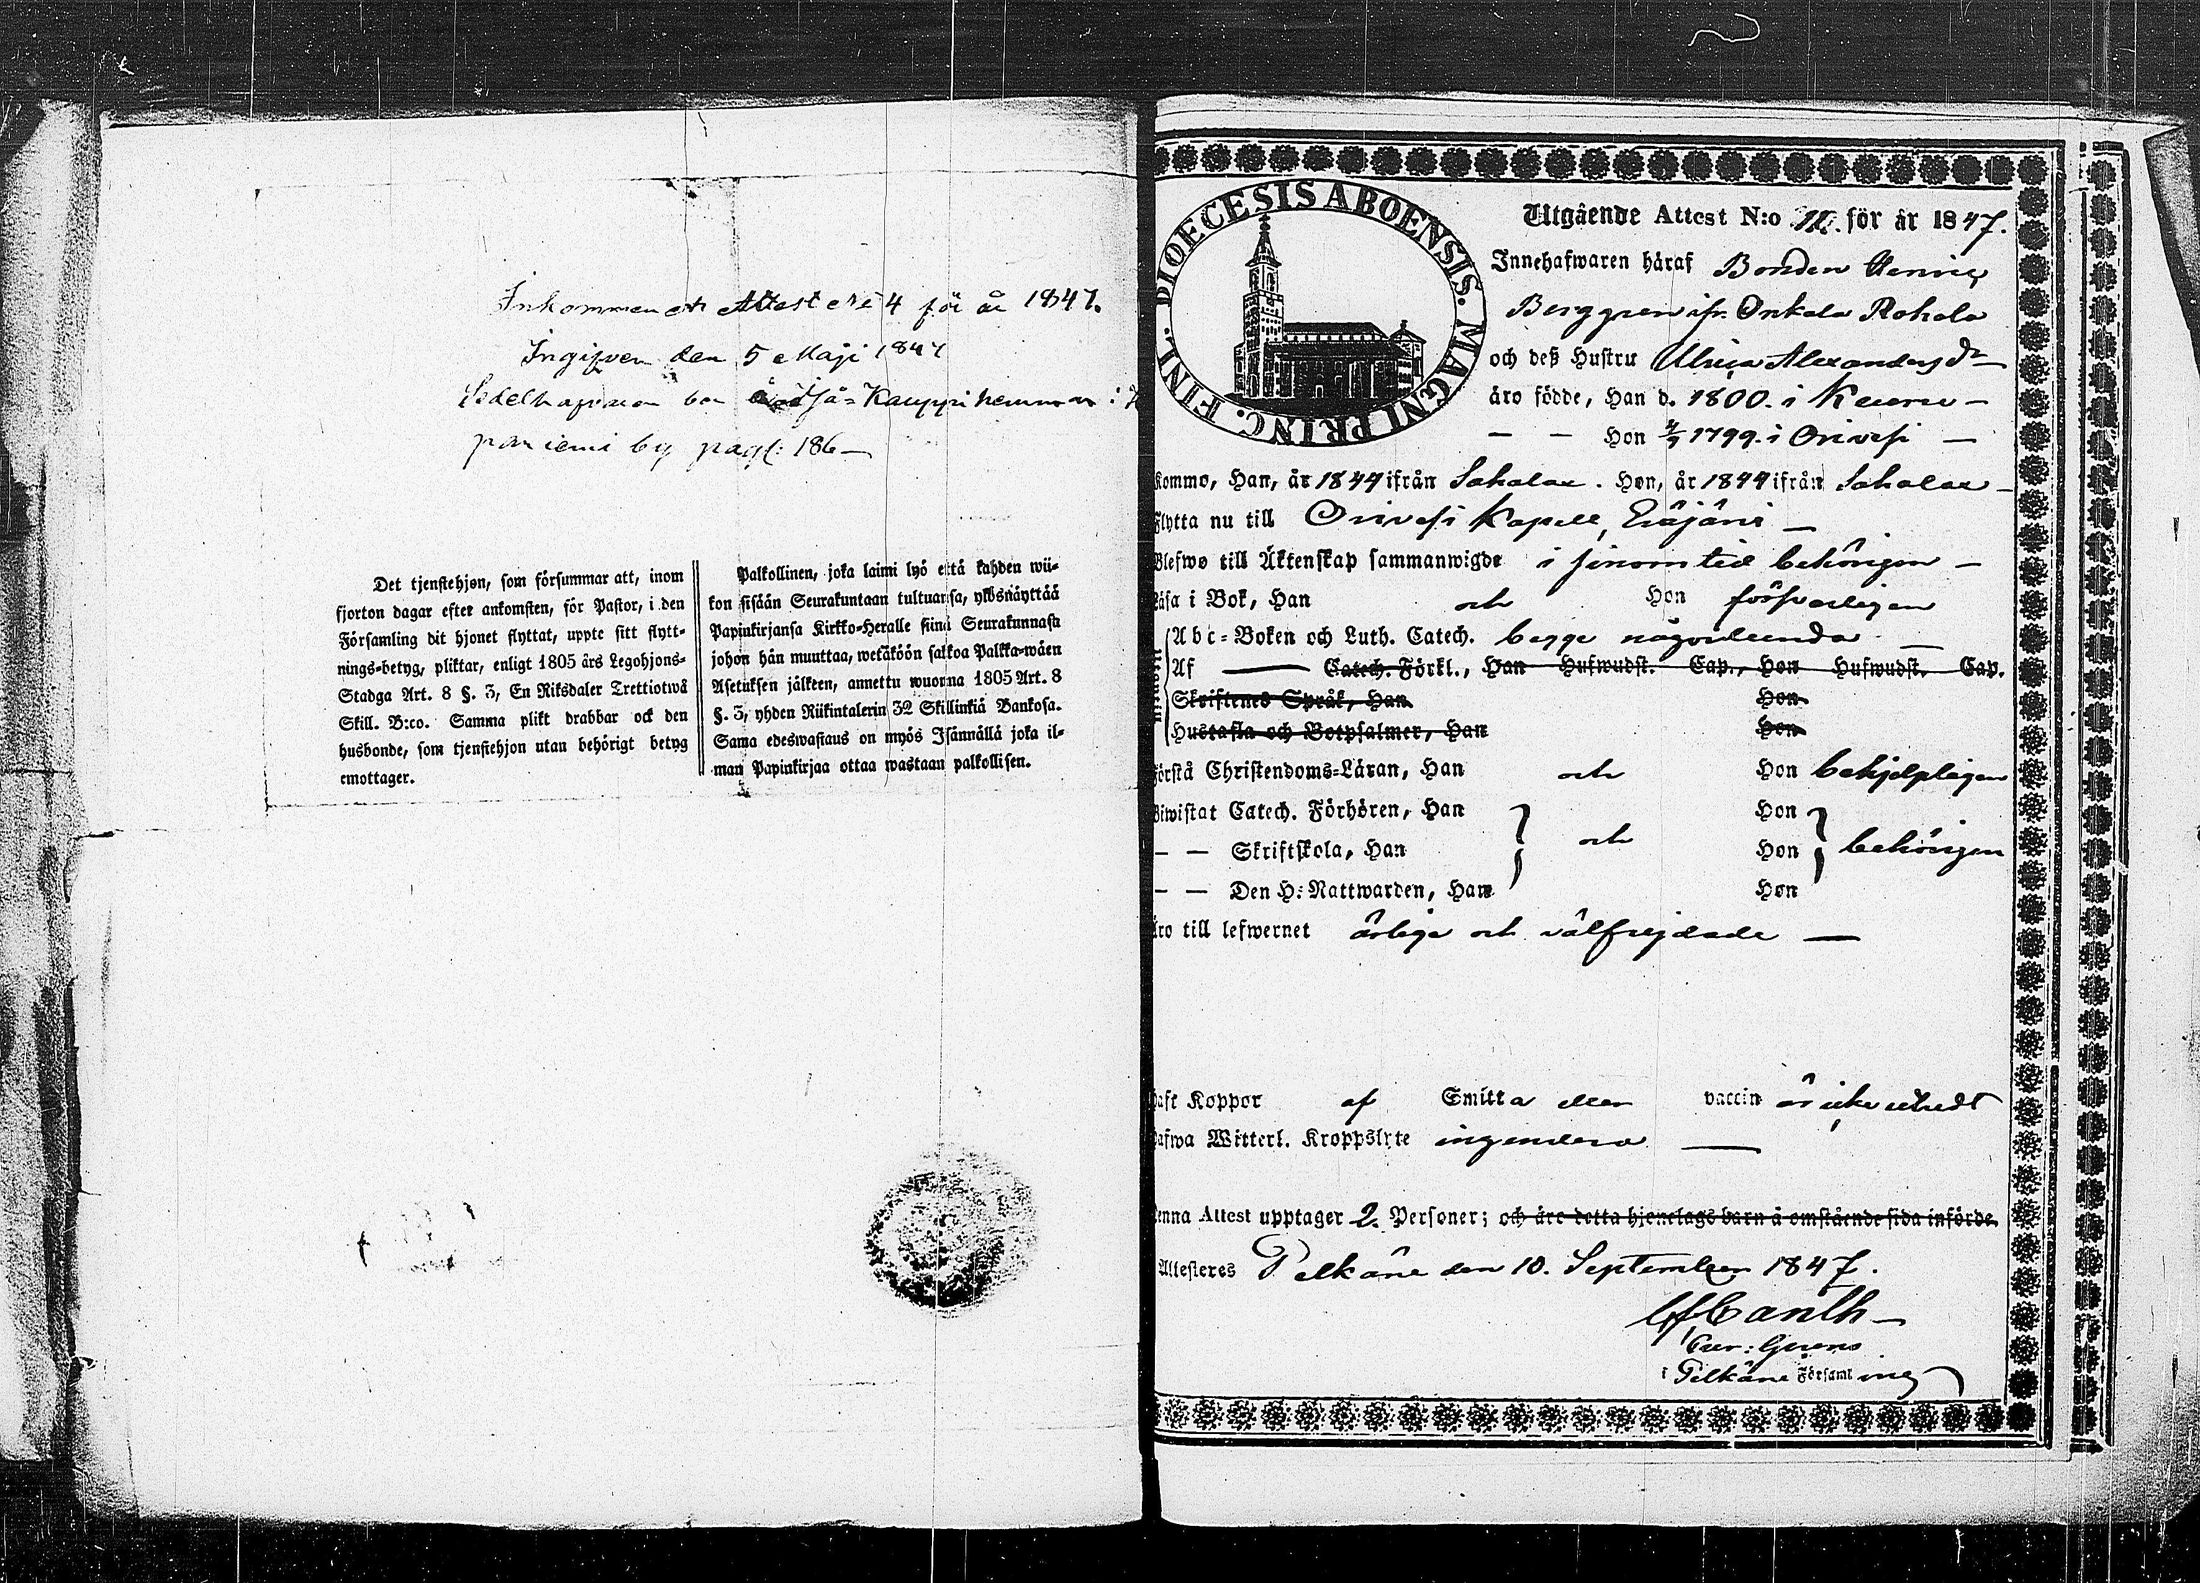 Inkommen Attest No 4 för år 1847.
Ingifven den 5 Maji 1847
Sedelhafvaren bor Kauppi hemman i
by pag: 186
Det tjenstehjon, som försummar att, inom
fjorton dagar efter ankomsten, för Pastor, i den
Församling dit hjonet flyttat, uppte sitt flytt-
nings-betyg, pliktar, enligt 1805 års Legohjons-
Stadga Art. 8 §. 3, En Riksdaler Trettiotwå
Skill. B:co. Samma plikt drabbar ock den
husbonde, som tjenstehjon utan behörigt betyg
emottager.
Palkollinen, joka laimi lyö että kahden wii-
kon sisään Seurakuntaan tultuansa, ylösnäyttää
Papinkirjansa Kirkko-Heralle siinä Seurakunnasa
johon hän muuttaa, wetäköön sakkoa Palkka-wäen
Asetuksen jälkeen, annettu wuonna 1805 Art. 8
§. 3, yhden Riikintalerin 32 Skillinkiä Bankosa.
Sama edeswastaus on myös Isännällä joka il-
man Papinkirjaa ottaa wastaan palkollisen.
DIOECESIS ABOENSIS. MAGNI PRINC. FINL.
Utgående Attest N:o 11. för år 1847.
Innehafwaren häraf Bonden Henric
Berggren ifr. Onkala Rohola
och deß Hustru Ulrica Alexandersdr
äro födde, Han d. 1800. i Keuru
— — Hon 1799. i Orivesi —
Kommo, Han, år 1844 ifrån Sahalax. Hon, år 1844 ifrån Sahalax
Flytta nu till Orivesi Kapell, Eräjärvi —
Blefwo till Äktenskap sammanwigde i sinom tid behörigen —
Läsa i Bok, Han och Hon försvarligen
Abc-Boken och Luth. Catech. begge någorlunda —
Af — Catech. Förkl., Han Hufwudst. Cap., Hon Hufwudst. Cap.
Skriftenes Språk, Han Hon
Hustafla och Botpsalmer, Han Hon
Förstå Christendoms-Läran, Han och Hon behjelpligen
Biwistat Catech. Förhören, Han Hon
— — Skriftskola, Han och Hon behörigen
— — Den H: Nattwarden, Han Hon
Äro till lefwernet ärlige och välfrejdade —
Haft Koppor af Smitta eller vaccin är icke utredt
Hafwa Witterl. Kroppslyte ingendera —
Denna Attest upptager 2. Personer; och äre detta hjonelags barn å omstående sida införde.
Attesteres Pelkäne den 10. September 1847.
Canth
i Pelkäne Församling